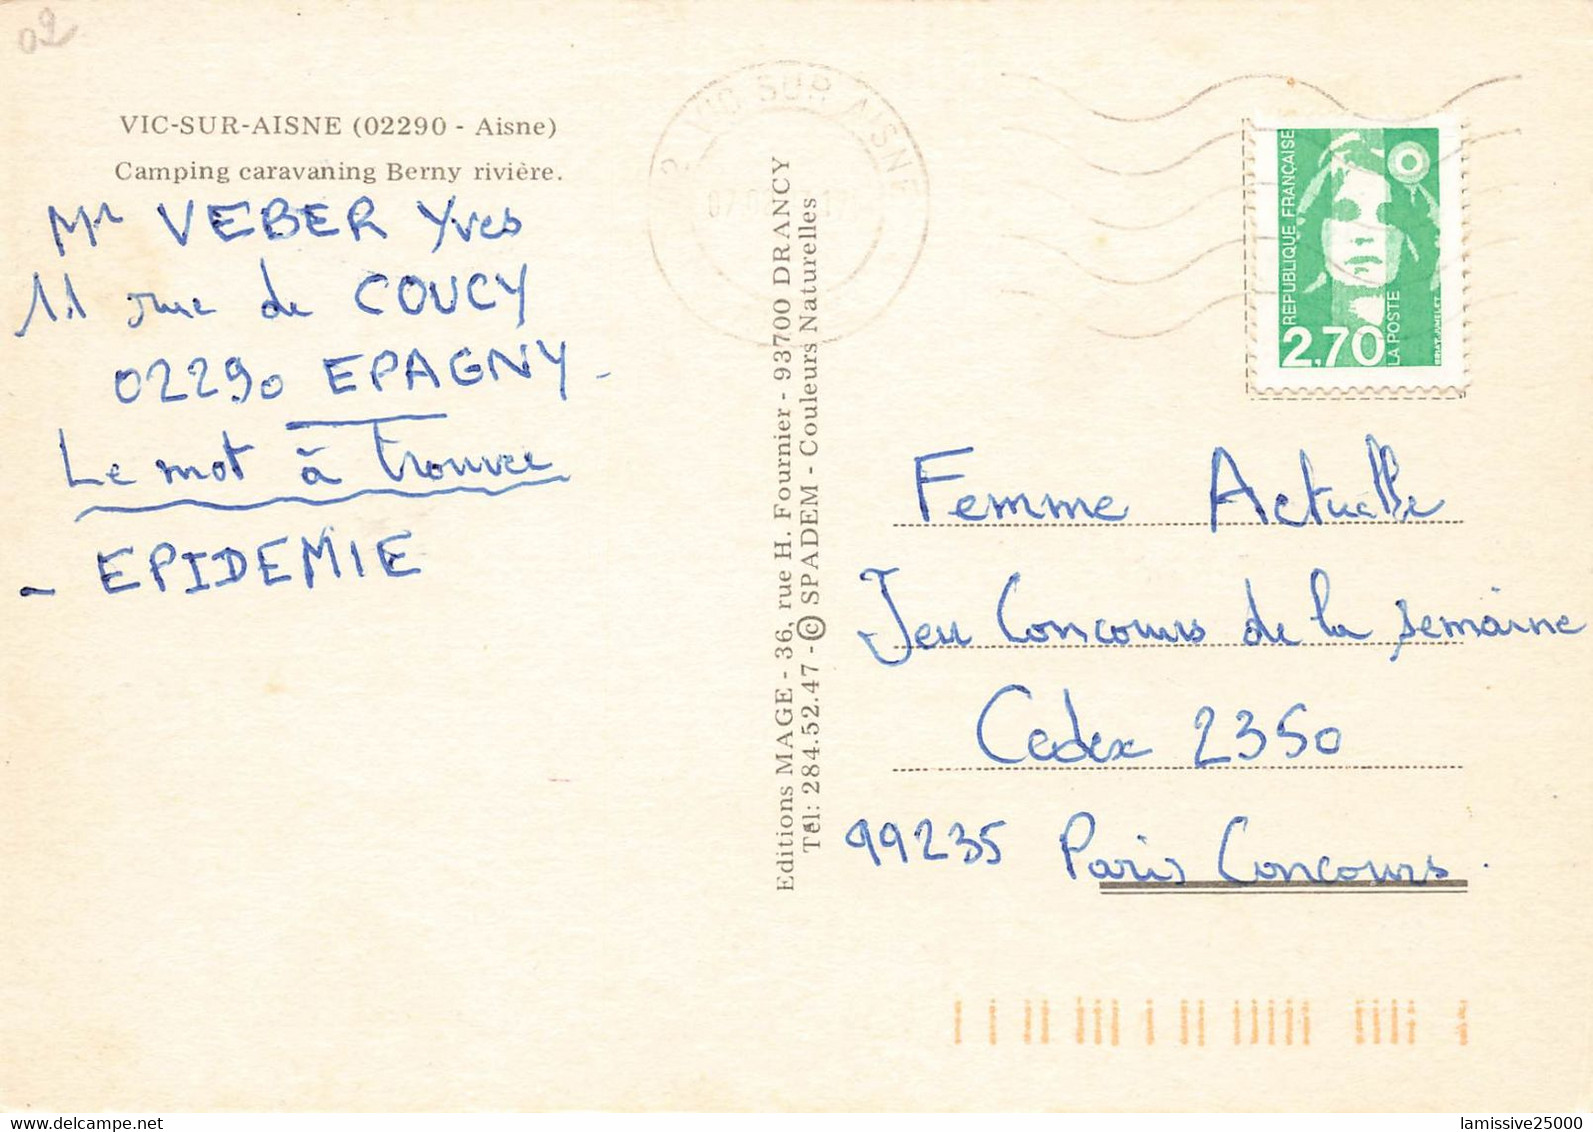 02
VIC-SUR-AISNE (02290 - Aisne)
Camping caravaning Berny rivière.
Mr VEBER Yves
11 rue de COUCY
02290 EPAGNY -
Le mot à trouver
- EPIDEMIE
VIC SUR AISNE
Editions MAGE - 36, rue H. Fournier - 93700 DRANCY
Tél: 284.52.47 - © SPADEM - Couleurs Naturelles
REPUBLIQUE FRANÇAISE
2,70
LA POSTE
BRIAT-JUMELET
Femme Actuelle
Jeu Concours de la semaine
Cedex 2350
99235 Paris Concours.
lamissive25000